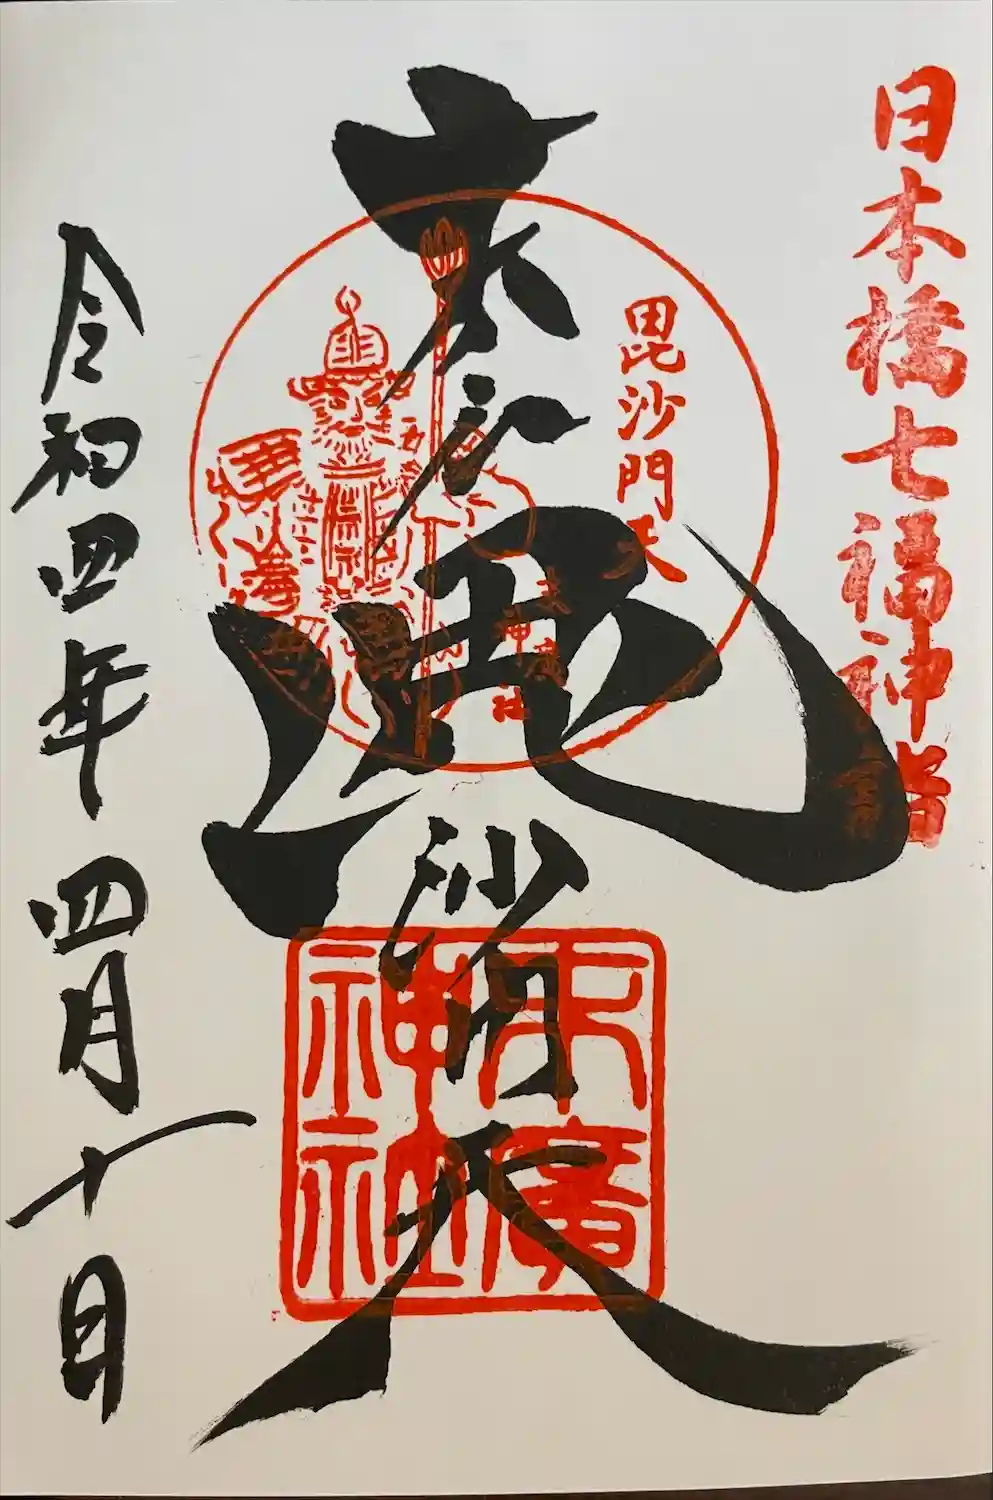 日本橋七福神詣
毘沙門天
末廣神社
末廣
毘沙門天
末廣神社
令和四年四月十日